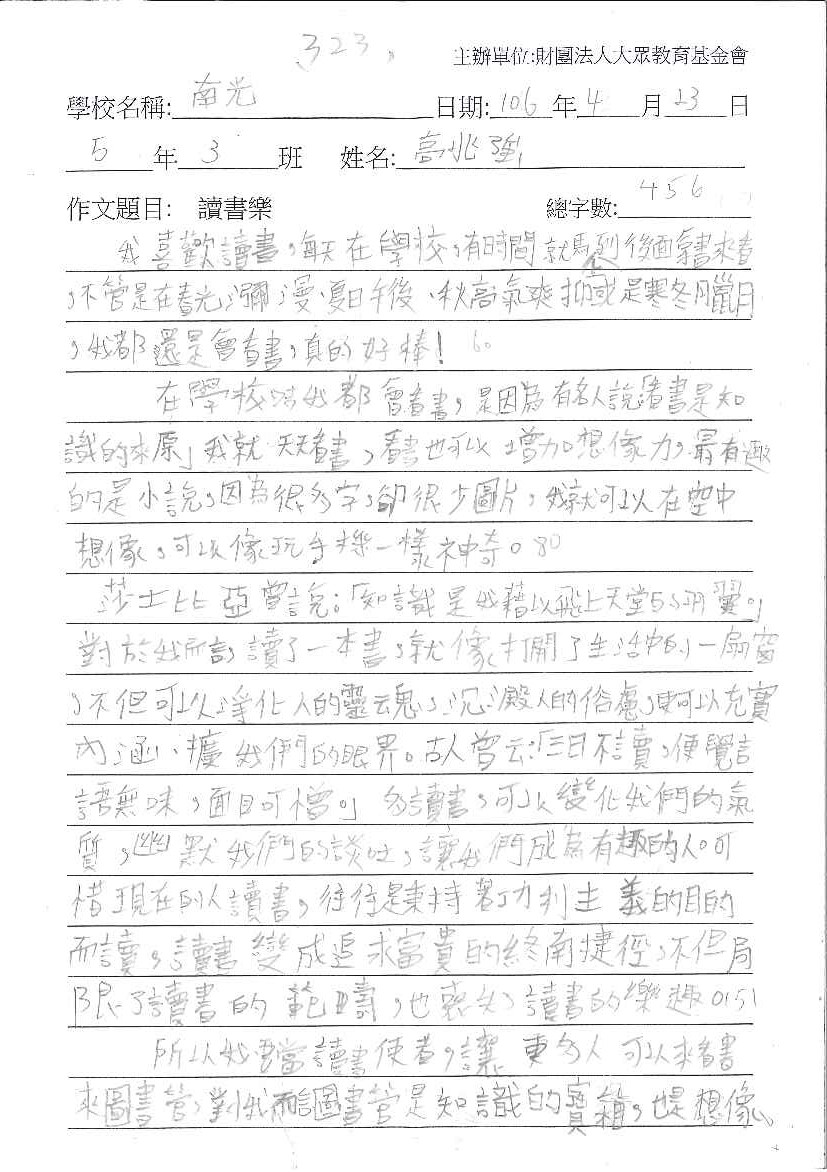 323。
主辦單位:財團法人大眾教育基金會
學校名稱: 南光 日期: 106 年 4 月 23 日
5 年 3 班 姓名: 高兆強
作文題目: 讀書樂 總字數: 456
我喜歡讀書，每天在學校，有時間就馬到後面拿書來看
，不管是在春光瀰漫、夏日午後、秋高氣爽抑或是寒冬臘月
，我都還是會看書，真的好棒！60
在學校時我都會看書，是因為有名人說「看書是知
識的來原」我就天天看書，看書也可以增加想像力，最有趣
的是小說，因為很多字，卻很少圖片，我就可以在空中
想像，可以像玩手機一樣神奇。80
莎士比亞曾說：「知識是我藉以飛上天堂的羽翼。」
對於我而言，讀了一本書，就像打開了生活中的一扇窗
，不但可以淨化人的靈魂，沉澱人的俗慮，更可以充實
內涵、擴我們的眼界。古人曾云：「三日不讀，便覺言
語無味，面目可憎。」多讀書，可以變化我們的氣
質，幽默我們的談吐，讓我們成為有趣的人。可
惜現在的人讀書，往往是秉持著功利主義的目的
而讀，讀書變成追求富貴的終南捷徑，不但局
限了讀書的範疇，也喪失了讀書的樂趣。151
所以我要當讀書使者，讓更多人可以來看書
來圖書管，對我而言圖書管是知識的寶箱，也是想像